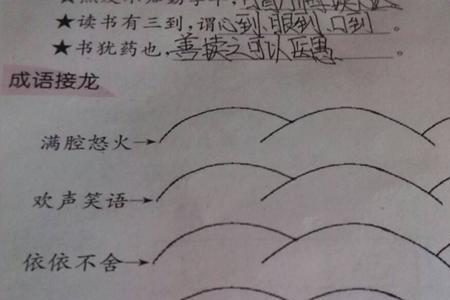 ★读书有三到，谓心到,眼到,口到。
★书犹药也，善读之可以医愚。
成语接龙
满腔怒火→
欢声笑语→
依依不舍→